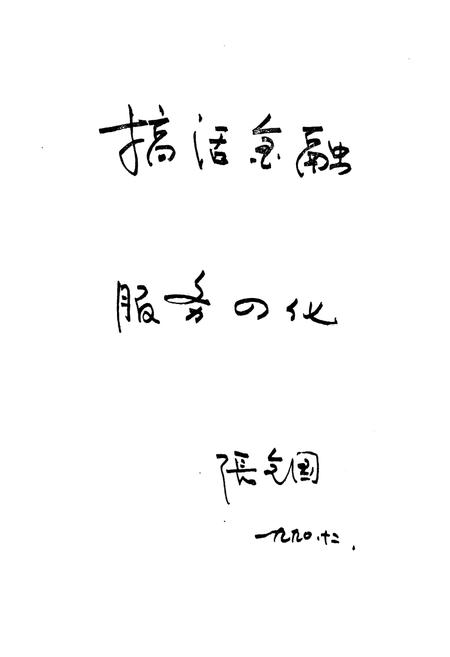 搞活金融
服务四化
張国
一九九〇.十二.